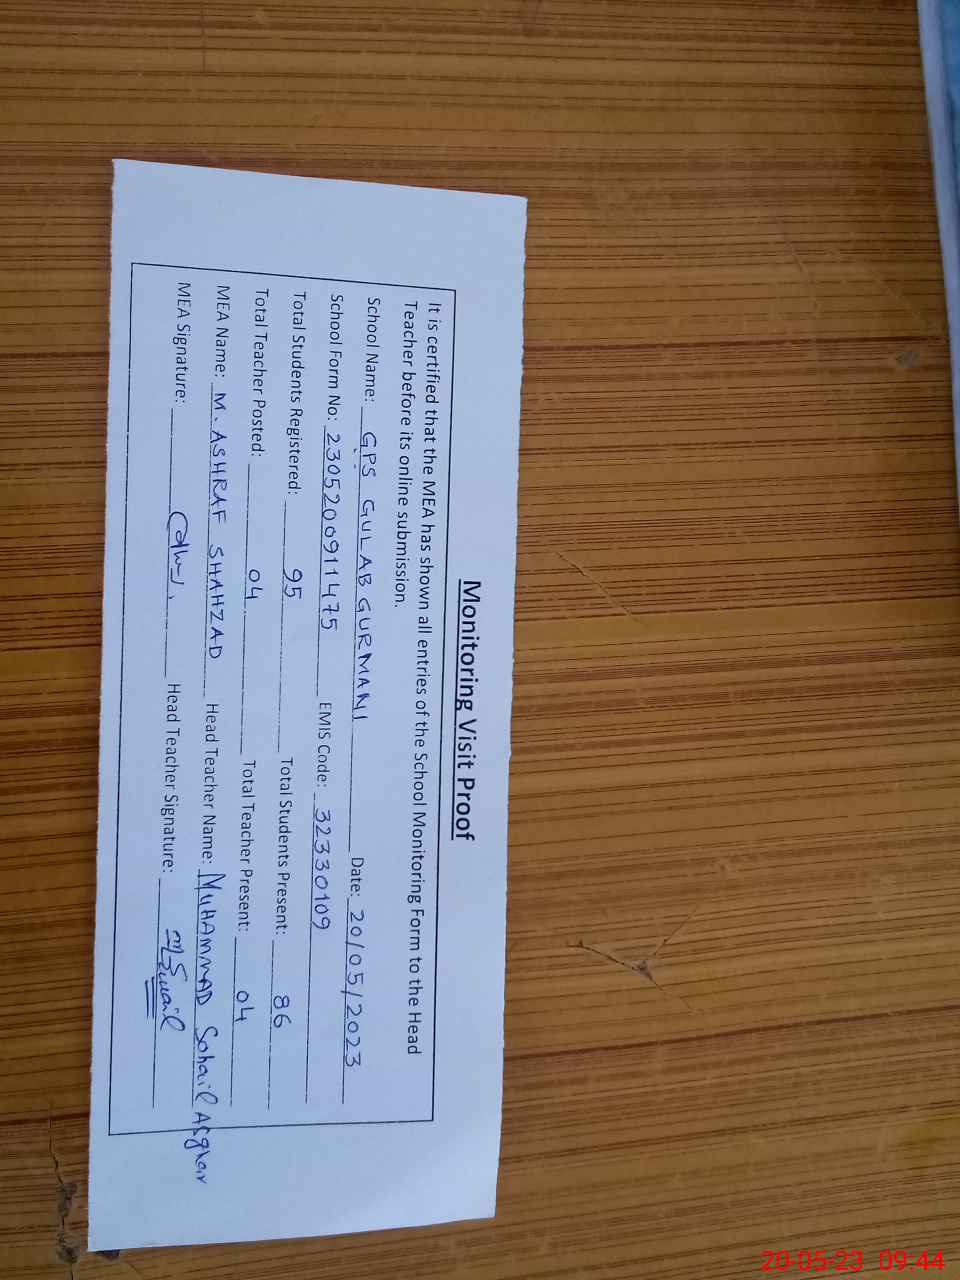 Monitoring Visit Proof
It is certified that the MEA has shown all entries of the School Monitoring Form to the Head
Teacher before its online submission.
School Name: GPS GULAB GURMANI Date: 20/05/2023
School Form No: 2305200911475 EMIS Code: 32330109
Total Students Registered: 95 Total Students Present: 86
Total Teacher Posted: 04 Total Teacher Present: 04
MEA Name: M. ASHRAF SHAHZAD Head Teacher Name: MUHAMMAD Sohail Asghar
MEA Signature: Head Teacher Signature:
20-05-23 09:44